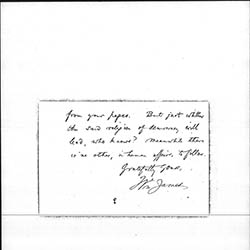 from your pages. But just whither
the said religion of democracy will
lead, who knows? Meanwhile there
is no other, in human affairs, to follow.
Gratefully yours,
Wm James